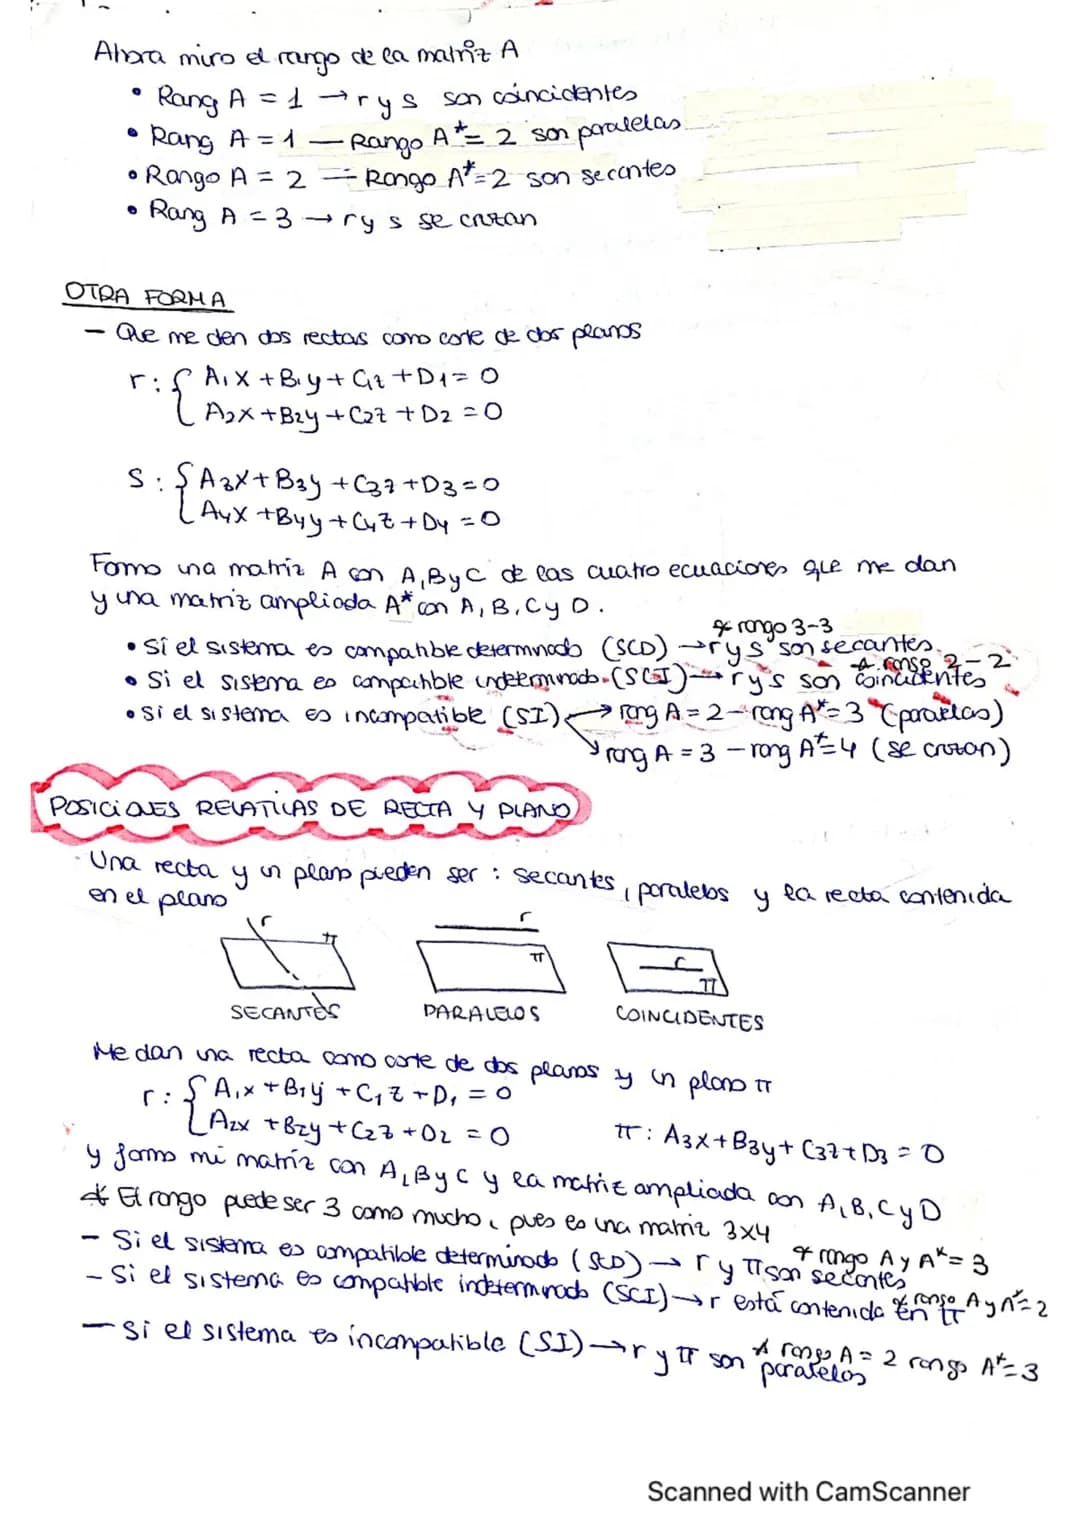 Ahora miro el rango de la matriz A
• Rang A = 1 → r y s son coincidentes
• Rang A = 1 — Rango A* = 2 son paralelas
• Rango A = 2 — Rango A* = 2 son secantes
• Rang A = 3 → r y s se cruzan
OTRA FORMA
- Que me den dos rectas como corte de dos planos
r: { A₁x + B₁y + C₁z + D₁ = 0
A₂x + B₂y + C₂z + D₂ = 0
S: { A₃x + B₃y + C₃z + D₃ = 0
A₄x + B₄y + C₄z + D₄ = 0
Formo una matriz A con A, B y C de las cuatro ecuaciones que me dan
y una matriz ampliada A* con A, B, C y D.
* rango 3-3
• Si el sistema es compatible determinado (SCD) → r y s son secantes.
* rango 2-2
• Si el sistema es compatible indeterminado (SCI) → r y s son coincidentes
• Si el sistema es incompatible (SI) → rang A = 2 - rang A* = 3 (paralelas)
→ rang A = 3 - rang A* = 4 (se cruzan)
POSICIONES RELATIVAS DE RECTA Y PLANO
· Una recta y un plano pueden ser: secantes, paralelos y la recta contenida
en el plano
r π r π r π
SECANTES PARALELOS COINCIDENTES
Me dan una recta como corte de dos planos y un plano π
r: { A₁x + B₁y + C₁z + D₁ = 0
A₂x + B₂y + C₂z + D₂ = 0 π: A₃x + B₃y + C₃z + D₃ = 0
y formo mi matriz con A, B y C y la matriz ampliada con A, B, C y D
* El rango puede ser 3 como mucho, pues es una matriz 3x4
* rango A y A* = 3
- Si el sistema es compatible determinado (SCD) → r y π son secantes
* rango A y A* = 2
- Si el sistema es compatible indeterminado (SCI) → r está contenida en π
* rango A = 2 rango A* = 3
- Si el sistema es incompatible (SI) → r y π son paralelos
Scanned with CamScanner